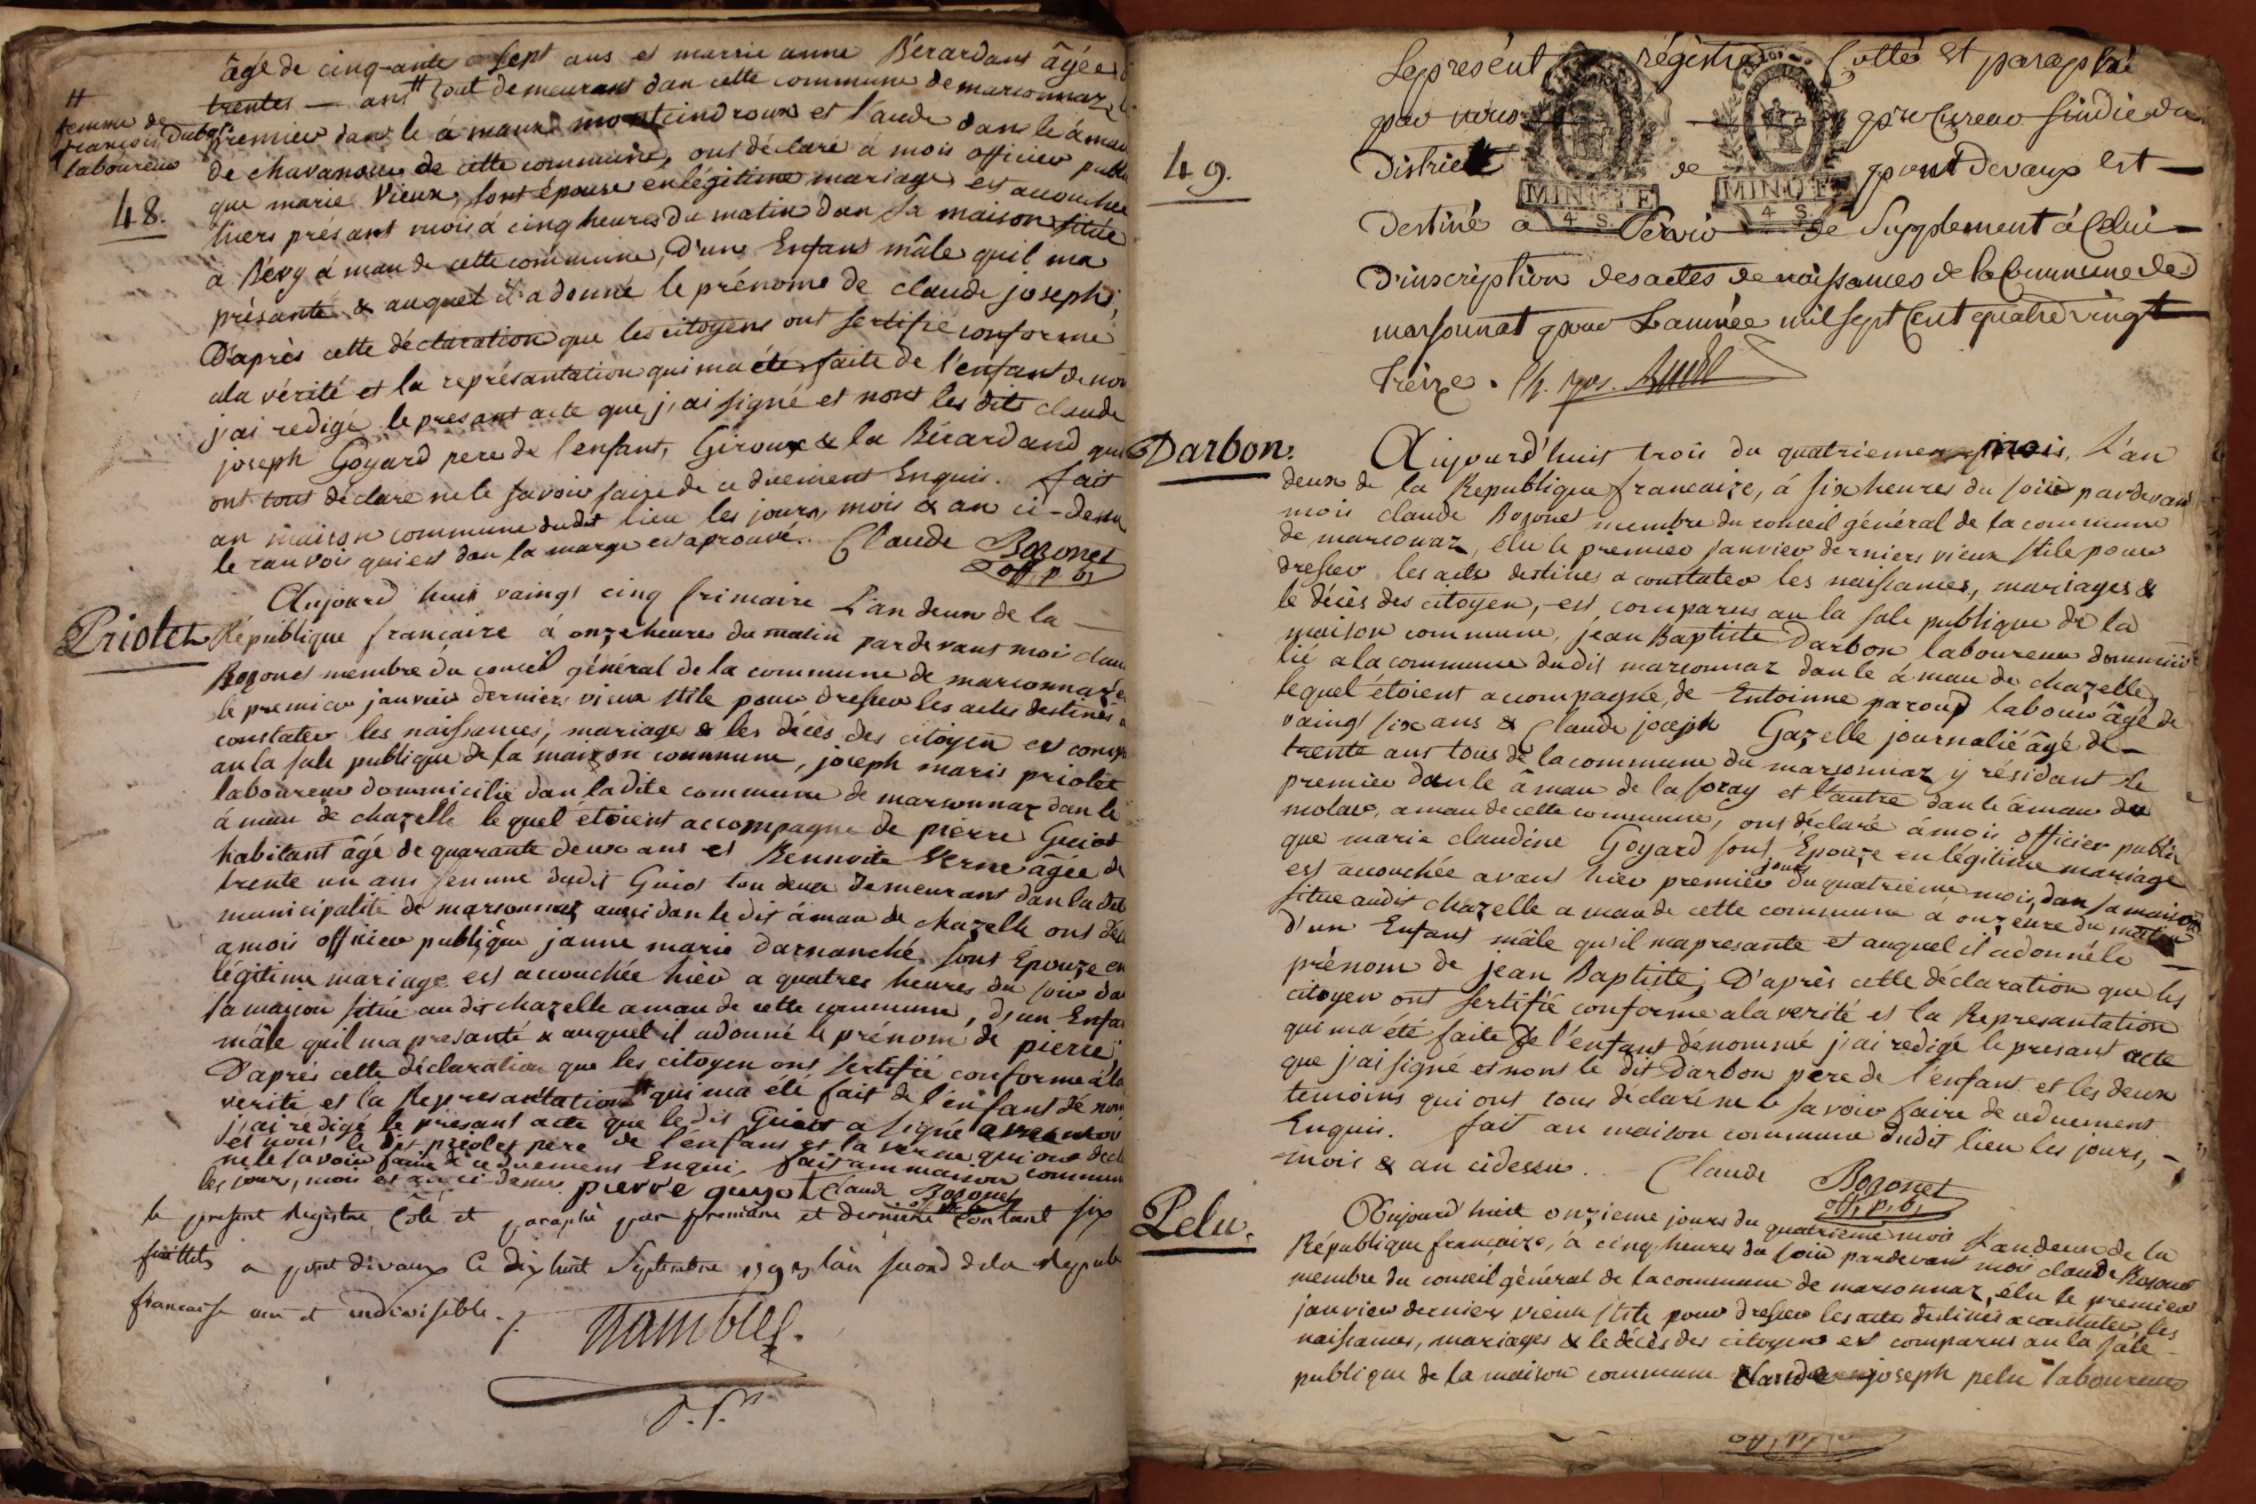 âgé de cinq-ante sept ans et marrie anne Bérardant âgée
trentes — ans # tout demeurant dan cette commune de marconnaz
#
femme de
françois Dubost
laboureur
premier dans le â maux montcindroux et l'aude dan le â mau
de chavanoux de cette commune, ont déclaré à mois officier publi
que marie Vieux, sont épouse en légitime mariage est accouchée
48.
hiers présant mois à cinq heures du matin dan sa maison situé
à Bévy â mau de cette commune, D'une Enfans mâle quil ma
présanté & auquel il a donné le prénoms de claude joseph;
D'après cette déclaration que les citoyens ont sertifié conforme
ala vérité et la représantation qui ma été faite de l'enfant dénom
j'ai redigé le presant acte que j'ai signé et nont les dits claude
joseph Goyard pere de l'enfant, Giroux & la Bérardand qui
ont tout déclaré ne le savoir faire de ce duement Enquis. fait
an maison commune dudit lieu les jours, mois & an ci-dessu
le ranvois qui est dan la marge est aprouvé. Claude Bozonet
off. p. b,
Priolet
Aujourd huis vaingt cinq frimaire L'an deux de la —
République françaire à onze heures du matin pardevant moi clau
Bozonet membre du conseil général de la commune de marconnaz é
le premier janvier dernier vieux stile pour dresser les actes destinés a
constater les naissances, mariage & les décès des citoyen est comp
an la sale publique de la maison commune, joseph marie priolet
laboureur dommicilié dan ladite commune de marsonnaz dan le
â mau de chazelle lequel étoient accompagné de pierre Guiot
habitant âgé de quarante deux ans et Bennoite Verne âgée de
trente un ans femme dudit Guiot tou deux demeurans dan la dit
municipalité de marsonnaz aussi dan le dit âmau de chazelle ont dé
amois officier publique janne marie darnanché sont Epouze en
légitime mariage est accouchée hier a quatres heures du soir da
sa maison situé au dit chazelle a mau de cette commune, d'un Enfa
mâle quil ma presanté & auquel il adonné le prénom de pierre;
D'aprés cette déclaration que les citoyen ont sertifié conforme âla
verité et la Representation qui ma été fait de l'enfant dé nom
j'ai rédigé le présant acte que le dit Guiot a signé avec moi
et nont le dit priolet père de l'énfans et la verne qui ont decl
ne le savoir faire de ce duement Enqui. fait an maison commun
les jour, mois et an ci desu pierre guyot Claude Bozonet
le present Registre Coté et paraphé par premiere et derniere Contant six
feuillets a pont devaux Ce dix huit Septembre 1793 l'an second de la Repub
francaise une et indivisible. /.
49.
Le present régistre Cotté et paraphé
par nous — procureur sindic du
District de pont devaux est —
MINUTE
4 S
MINUTE
4 S
Destiné a Servir de Supplement à Celui —
D'inscription des actes de naissances de la Commune de
marsonnat pour L'année mil sept Cent quatre vingt
treize.
Darbon.
Aujourd'huit trois du quatriemes mois, L'an
deux de la Republique francaize, á six heures du soir pardevant
mois claude Bozonet membre du conseil général de la commune
de marconnaz, élu le premier janvier derniers vieux stile pour
dresser les acts destines a constater les naissances, mariages &
le décès des citoyen, est comparus an la sale publique de la
maison commune, jean Baptiste Darbon laboureur dommici
lié a la commune dudit marconnaz dan le â mau de chazelle,
lequel étoient accompagné, de Entoinne paroud labour âgé de
vaingt six ans & Claude joseph Gazelle journalié âgé de —
trente ans tous de la commune du marsonnaz y résidant le
premier dan le âmau de la foray et l'autre dan le âmau du
molar, a mau de cette commune, ont déclaré ámois officier public
que marie claudine Goyard sont Epouze en légitime mariage
est accouchée avant hier premier jours du quatrieme mois, dan sa maison
situe audit chazelle a mau de cette commune à onz eure du matin
D'un Enfans mâle qu'il ma presante et auquel il adonné le —
prénom de jean Baptiste; D'après cette déclaration que les
citoyen ont sertifié conforme ala verité et la Representation
qui ma été faite de l'enfans dénommé j'ai redigé le presant acte
que j'ai signé et nont le dit Darbon père de l'enfant et les deux
temoins qui ont tous déclaré ne le savoir faire de ceduement
Enquis. fait an maison commune dudit lieu les jours, —
mois & an cidessu. Claude Bozonet
off, p, b,
Pelu.
Aujourd'huit onzieme jours du quatrieme mois L'an deux de la
République françaize, à cinq heures du soir pardevant mois claude Bozonet
membre du conseil général de la commune de marconnaz, élu le premier
janvier dernier vieux stile pour dresser les actes destinés a constater les
naissances, mariages & le décès des citoyens est comparus an la sale
publique de la maison commune Claude joseph pelu laboureur